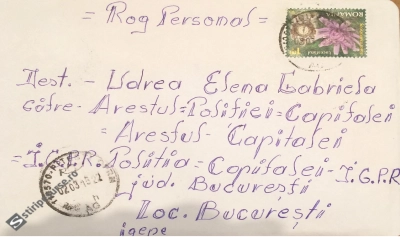 = Rog Personal =
ROMANIA
Dest. - Udrea Elena Gabriela
Către - Arestul = Poliției = Capitalei
= Arestul - Capitalei
= I.G.P.R. Politia = Capitalei - I.G.P.R
jud. București
Loc. București
stirip